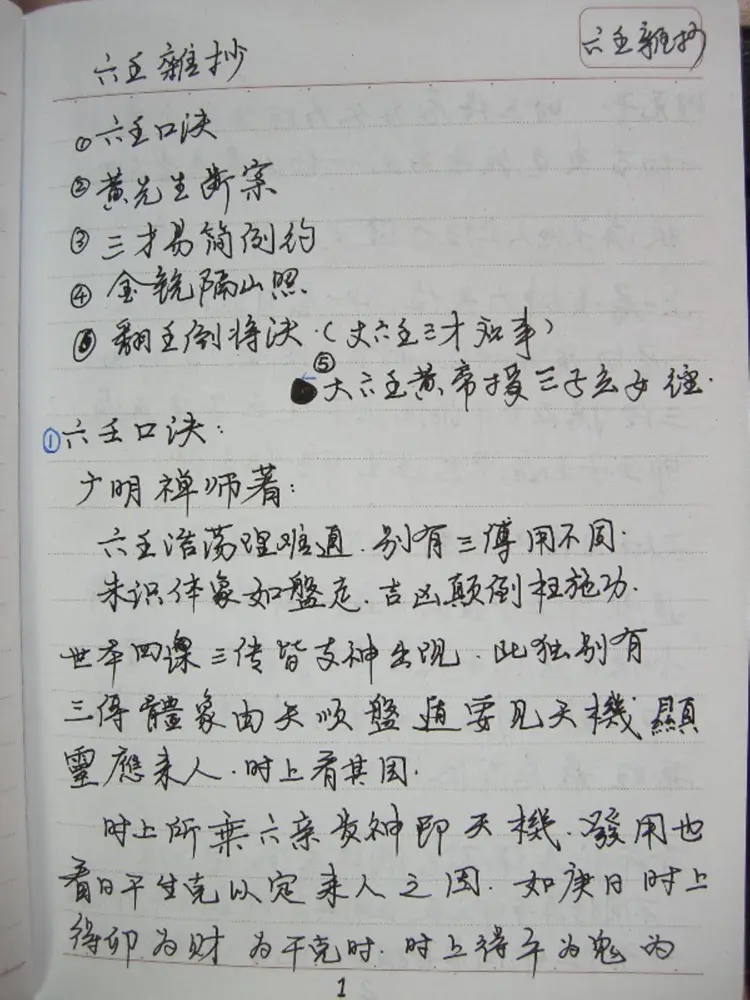 六壬雜抄
六壬雜抄
①六壬口决
②黄先生断案
③三才易简例约
④金镜隔山照
⑥翻壬倒将决.(大六壬三才知事)
⑤
大六壬黄帝授三子玄女经.
①六壬口决:
广明禅师著:
六壬浩荡理难通.别有三傳用不同.
未识体象如盤走.吉凶颠倒枉施功.
世本四课三传皆支神出现.此独别有
三傳體象由天顺盤道要见天機顯
靈應来人.时上看其因.
时上所乘六亲贵神即天機.發用也
看日干生克以定来人之因.如庚日时上
得卯为财为干克时.时上得午为鬼为
1